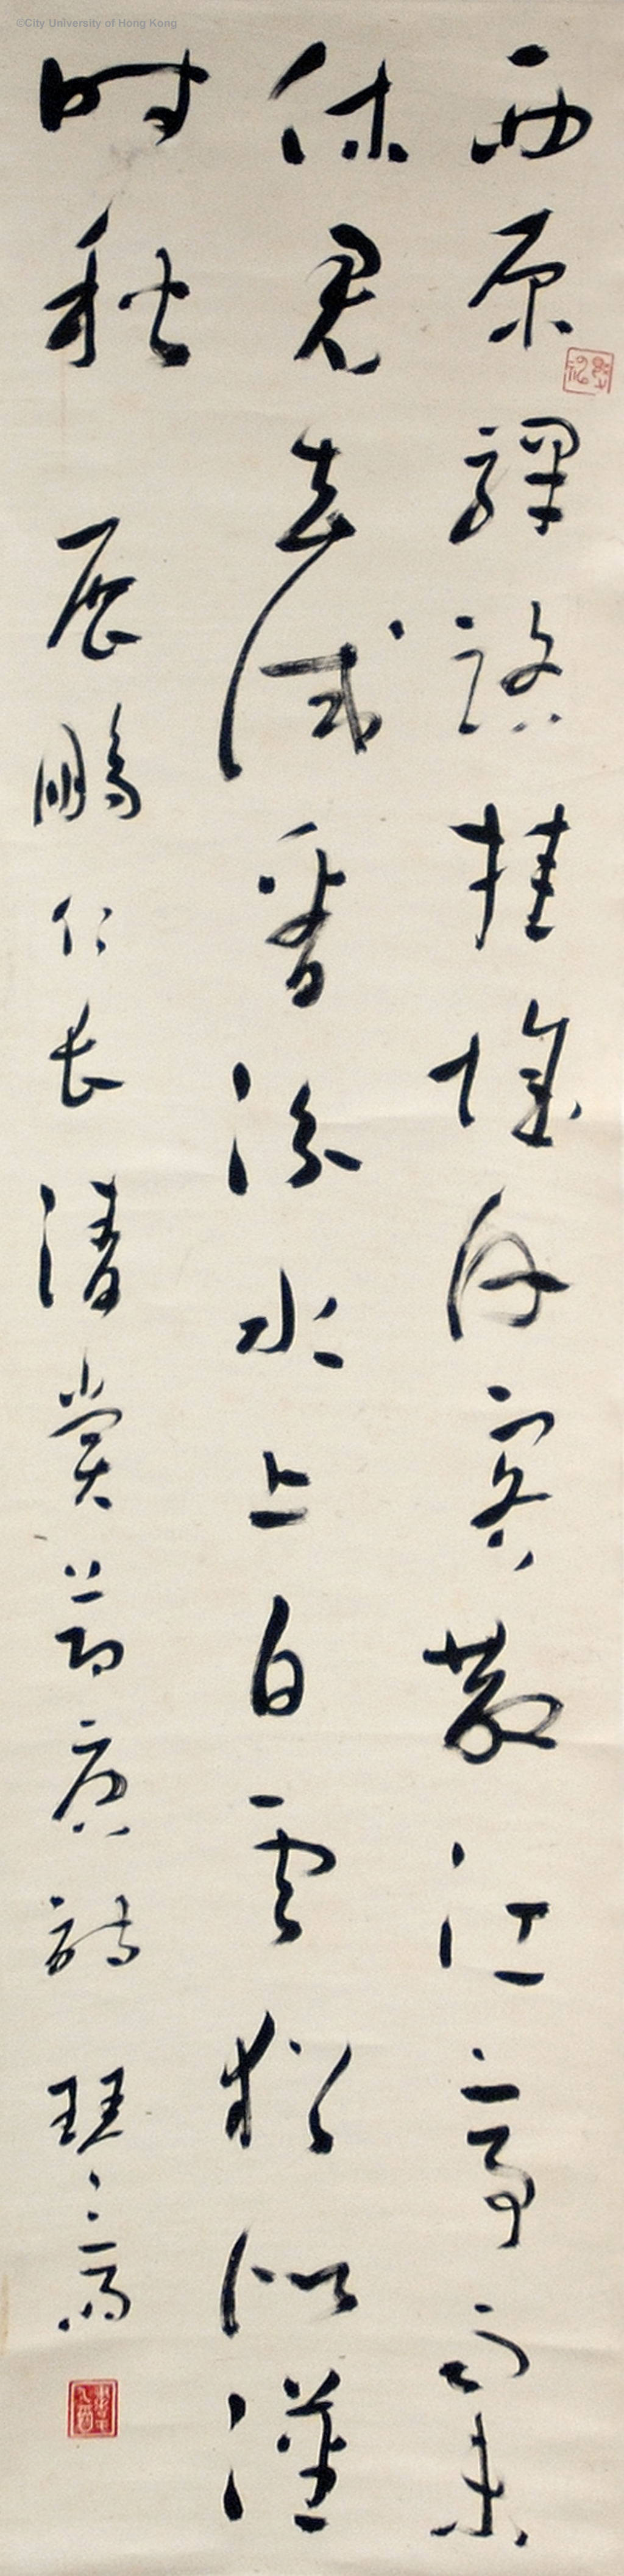 ©City University of Hong Kong
西原驛路挂城頭客散江亭雨未
休君去試看汾水上白雲猶似漢
時秋 鵬仁長清賞 唐詩 琴齋